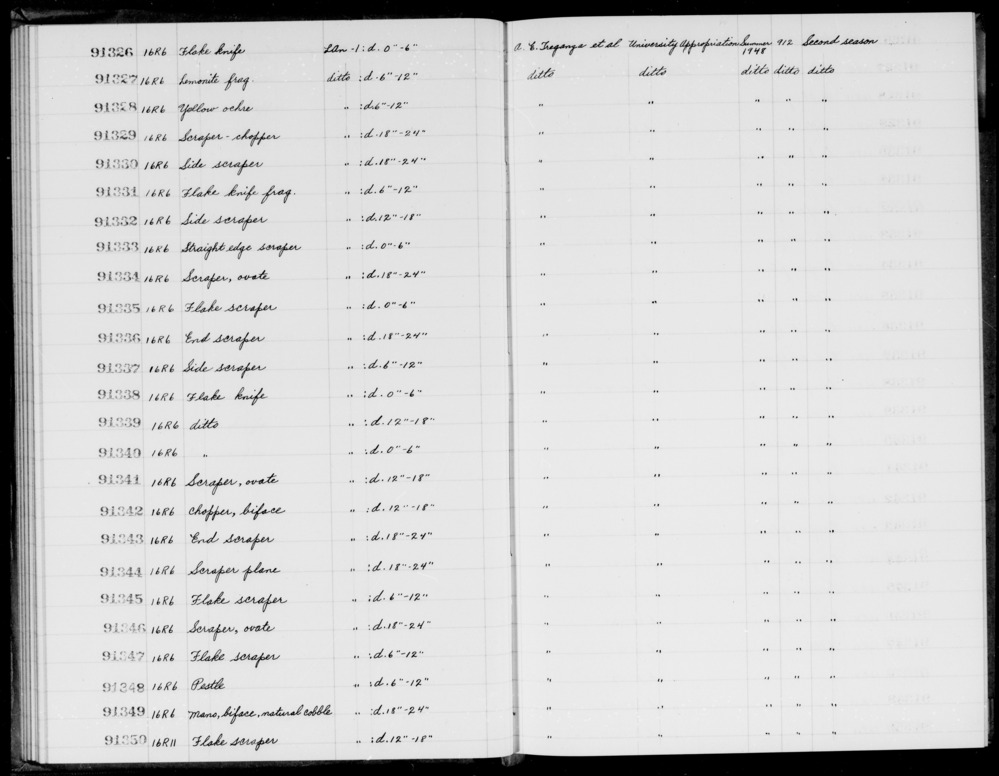 91326 16R6 Flake knife LAn-1: d. 0"-6" A. E. Treganza et al University Appropriation Summer 1948 912 Second season
91327 16R6 Lemonite frag. ditto :d. 6"-12" ditto ditto ditto ditto ditto
91328 16R6 Yellow ochre " :d. 6"-12" " " " " "
91329 16R6 Scraper-chopper " :d. 18"-24" " " " " "
91330 16R6 Side scraper " :d. 18"-24" " " " " "
91331 16R6 Flake knife frag. " :d. 6"-12" " " " " "
91332 16R6 Side scraper " :d. 12"-18" " " " " "
91333 16R6 Straight edge scraper " :d. 0"-6" " " " " "
91334 16R6 Scraper, ovate " :d. 18"-24" " " " " "
91335 16R6 Flake scraper " :d. 0"-6" " " " " "
91336 16R6 End scraper " :d. 18"-24" " " " " "
91337 16R6 Side scraper " :d. 6"-12" " " " " "
91338 16R6 Flake knife " :d. 0"-6" " " " " "
91339 16R6 ditto " :d. 12"-18" " " " " "
91340 16R6 " " :d. 0"-6" " " " " "
91341 16R6 Scraper, ovate " :d. 12"-18" " " " " "
91342 16R6 chopper, biface " :d. 12"-18" " " " " "
91343 16R6 End scraper " :d. 18"-24" " " " " "
91344 16R6 Scraper plane " :d. 18"-24" " " " " "
91345 16R6 Flake scraper " :d. 6"-12" " " " " "
91346 16R6 Scraper, ovate " :d. 18"-24" " " " " "
91347 16R6 Flake scraper " :d. 6"-12" " " " " "
91348 16R6 Pestle " :d. 6"-12" " " " " "
91349 16R6 Mano, biface, natural cobble " :d. 18"-24" " " " " "
91350 16R11 Flake scraper " :d. 12"-18" " " " " "